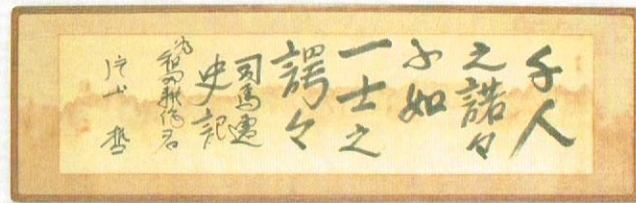 千人
之諾々
不如
一士之
諤々
司馬遷
史記
為
片山哲